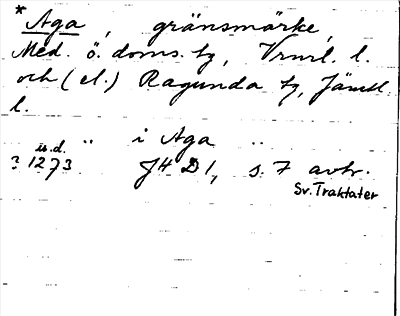 * Aga, gränsmärke,
Med. ö. doms. tg, Vrml. l.
och (el.) Ragunda tg, Jämtl.
l.
" i Aga "
u.d.
? 1273 JHD 1, s. 7 avtr.
Sv. Traktater